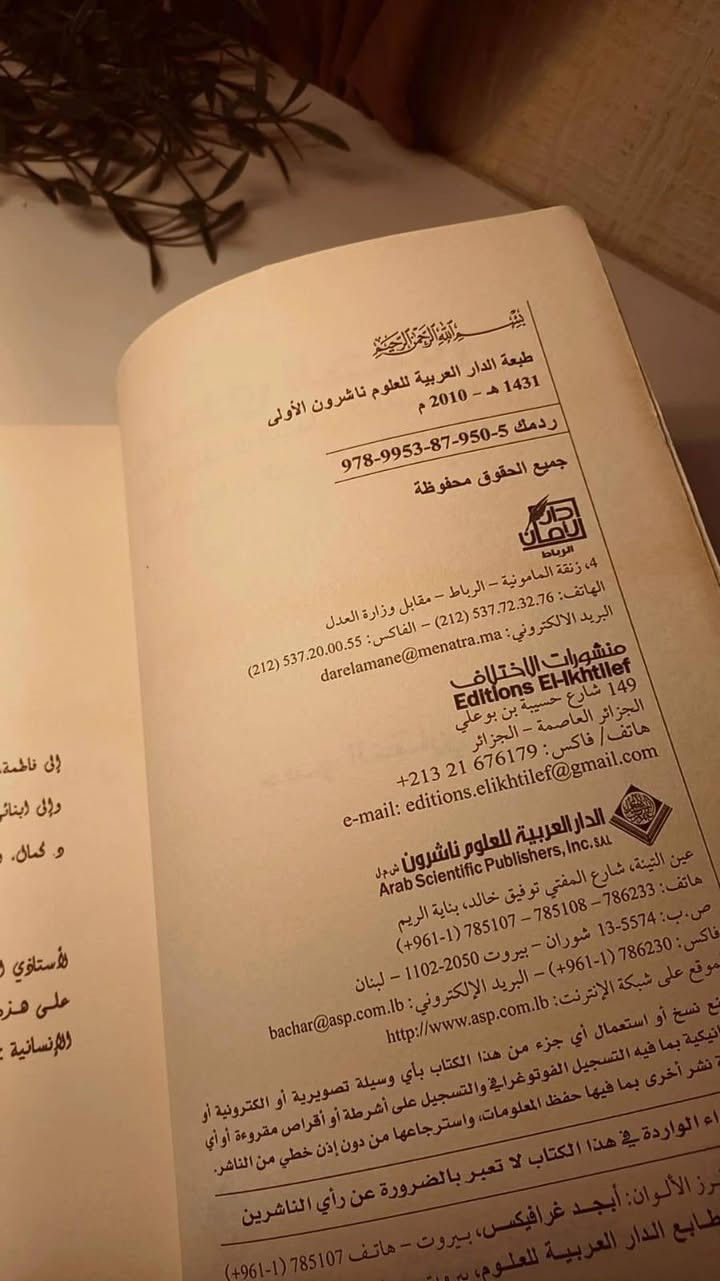 بسم الله الرحمن الرحيم
طبعة الدار العربية للعلوم ناشرون الأولى
1431 هـ - 2010 م
ردمك 5-950-87-9953-978
جميع الحقوق محفوظة
دار الأمان
الرباط
4، زنقة المامونية - الرباط - مقابل وزارة العدل
الهاتف: 537.72.32.76 (212) - الفاكس: 537.20.00.55 (212)
البريد الالكتروني: darelamane@menatra.ma
منشورات الاختلاف
Editions El-Ikhtilef
149 شارع حسيبة بن بوعلي
الجزائر العاصمة - الجزائر
هاتف/ فاكس: 676179 21 213+
e-mail: editions.elikhtilef@gmail.com
الدار العربية للعلوم ناشرون ش.م.ل
Arab Scientific Publishers, Inc. SAL
عين التينة، شارع المفتي توفيق خالد، بناية الريم
هاتف: 786233 - 785108 - 785107 (1-961+)
ص.ب: 5574-13 شوران - بيروت 2050-1102 - لبنان
فاكس: 786230 (1-961+) - البريد الإلكتروني: bachar@asp.com.lb
على شبكة الإنترنت: http://www.asp.com.lb
نسخ أو استعمال أي جزء من هذا الكتاب بأي وسيلة تصويرية أو الكترونية أو
بما فيه التسجيل الفوتوغرافي والتسجيل على أشرطة أو أقراص مقروءة أو أي
نشر أخرى بما فيها حفظ المعلومات، واسترجاعها من دون إذن خطي من الناشر.
الواردة في هذا الكتاب لا تعبر بالضرورة عن رأي الناشرين
الألوان: أبجد غرافيكس، بيروت - هاتف 785107 (1-961+)
الدار العربية للعلوم،
إلى فاطمة،
وإلى
د كمال، و
على
الإنسانية